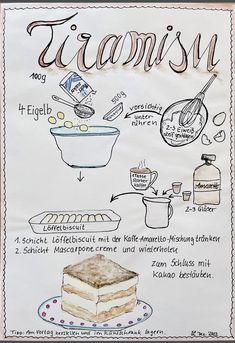 Tiramisu
100g
4 Eigelb
500g
vorsichtig
unter-
rühren
2-3 Eiweiß
steif geschlagen
1 Tasse
starker
Kaffee
Amaretto
2-3 Gläser
Löffelbiscuit
1. Schicht Löffelbiscuit mit der Kaffe-Amaretto-Mischung tränken
2. Schicht Mascarponecreme und wiederholen
zum Schluss mit
Kakao bestäuben.
Tipp: Am Vortag herstellen und im Kühlschrank lagern.